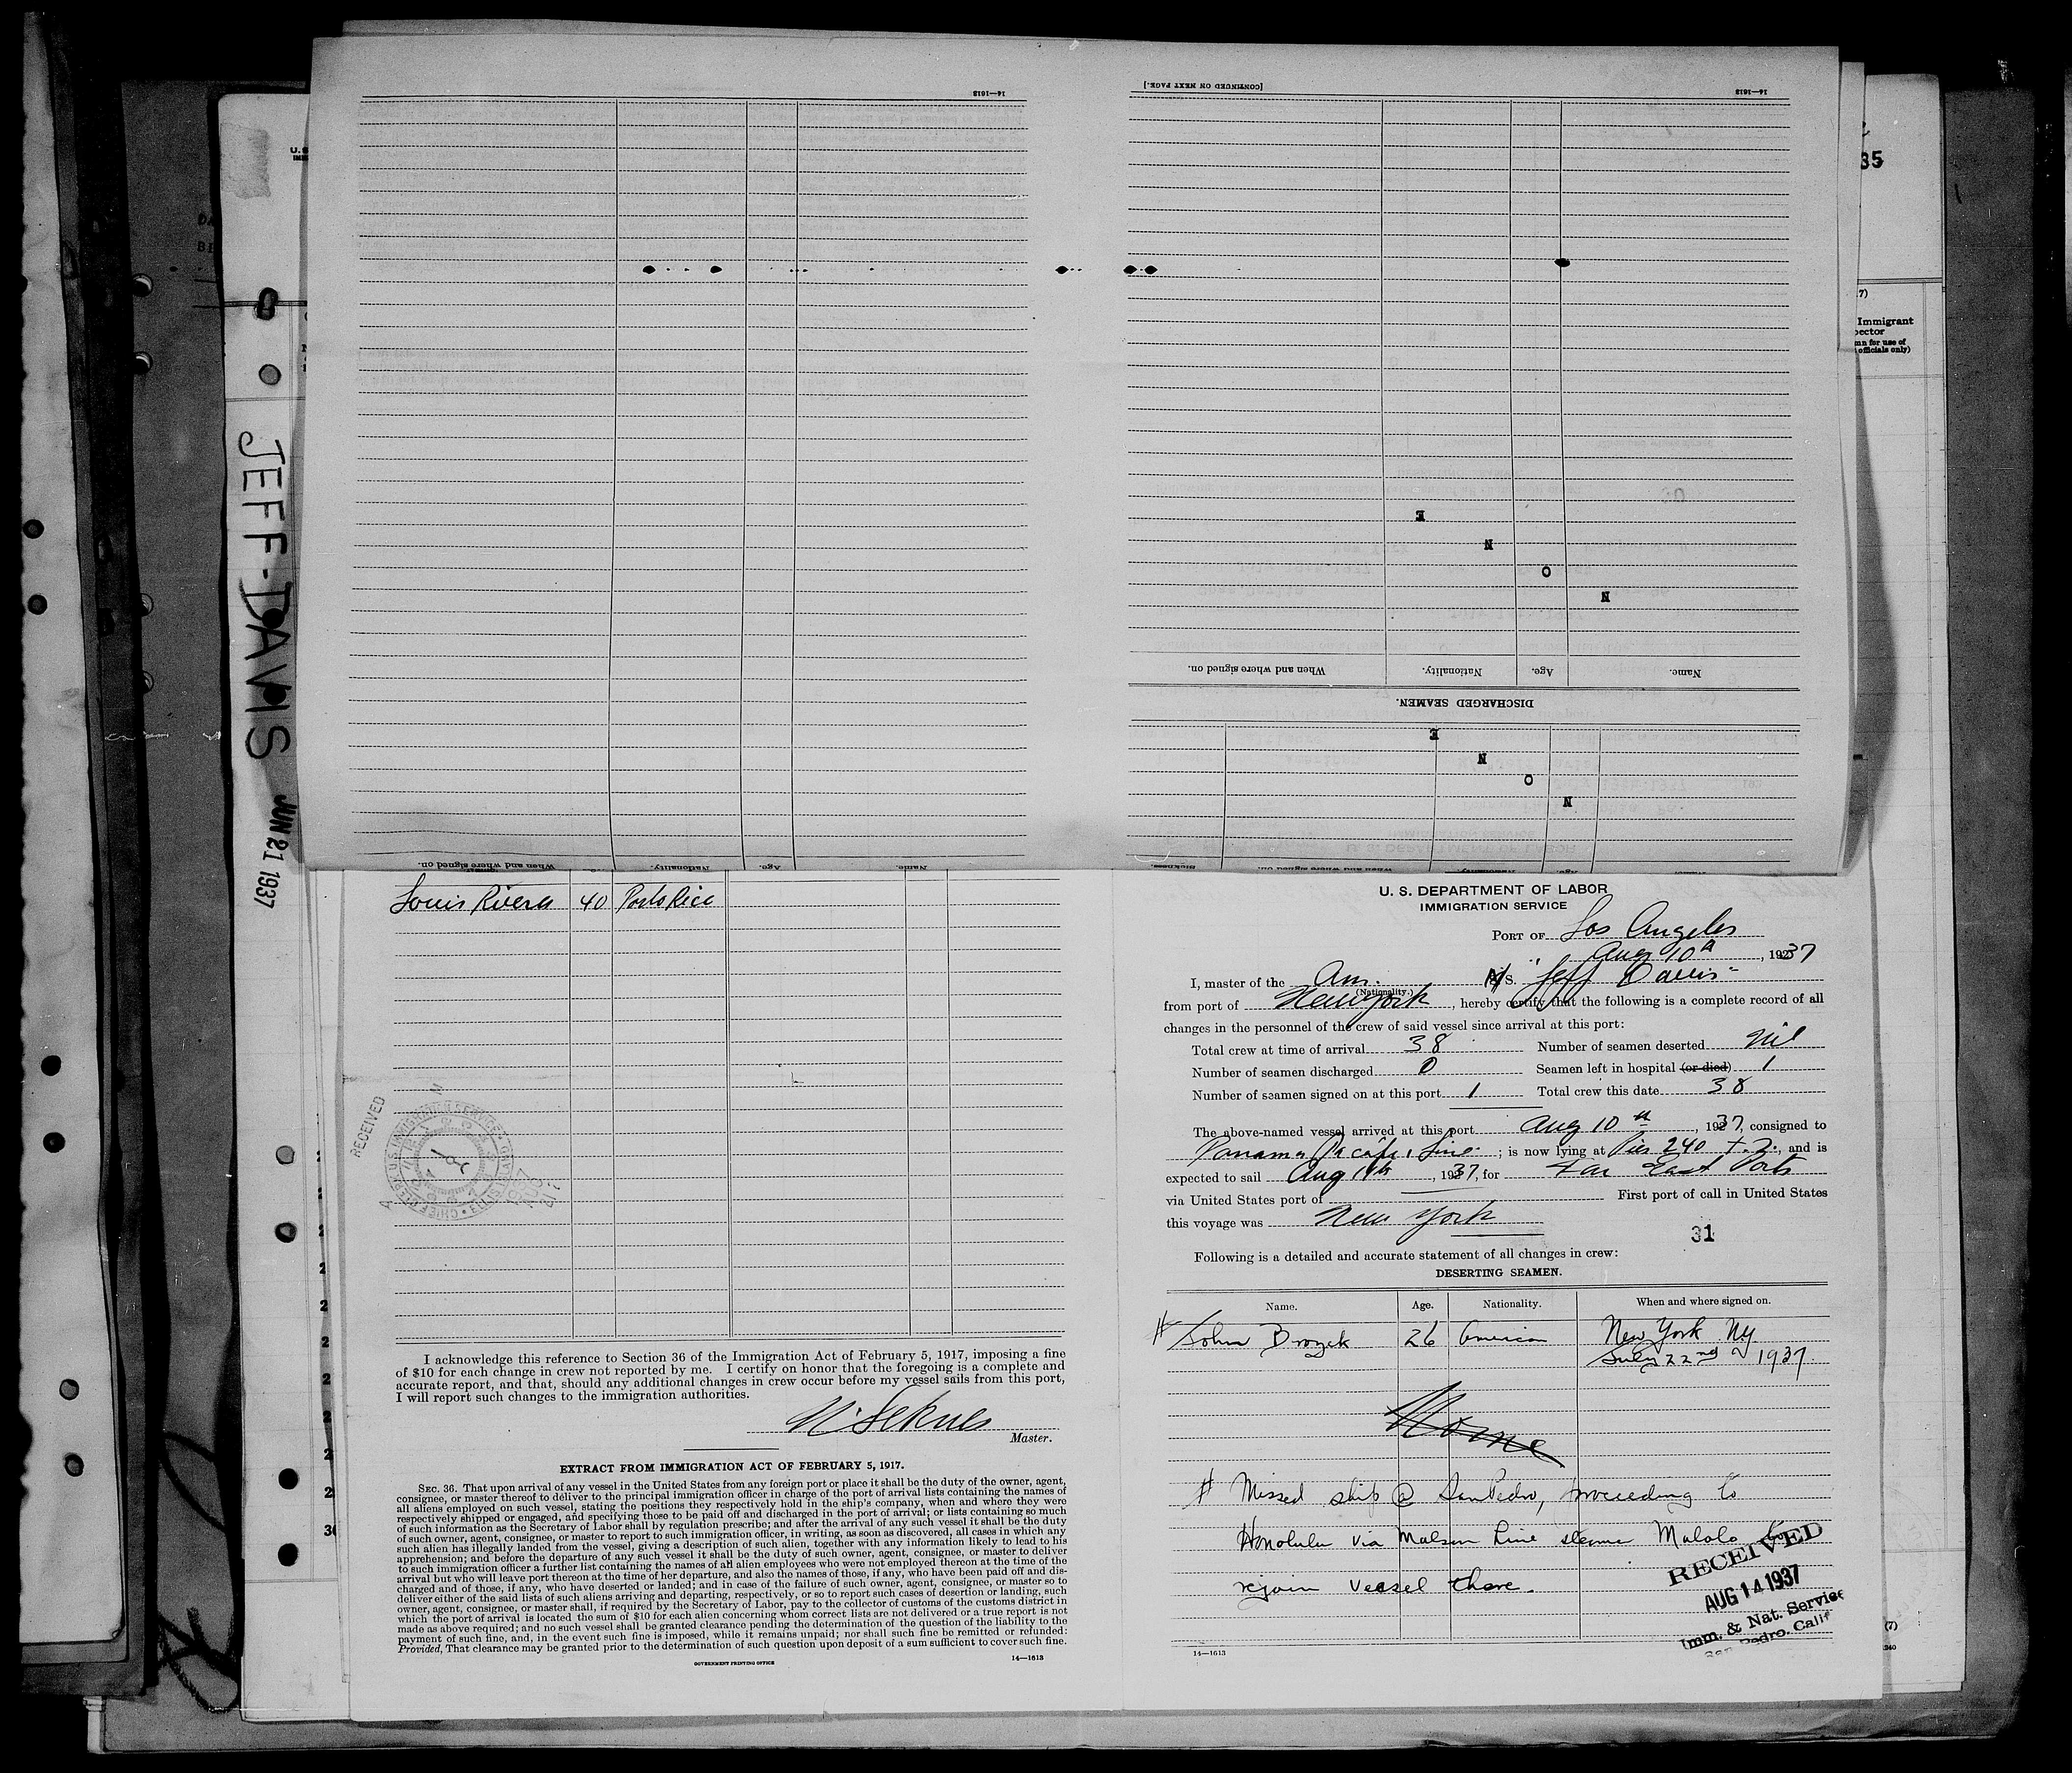 14—1613
[CONTINUED ON NEXT PAGE.]
14—1613
E
N
O
N
When and where signed on.
Nationality.
Age.
Name.
DISCHARGED SEAMEN.
E
N
O
N
When and where signed on.
Nationality.
Age.
Name.
Sickness.
When and where signed on.
Nationality.
35
Immigrant
officials only)
JEFF-DAVIS
JUN 21 1937
Louis Rivera 40 Porto Rico
RECEIVED
I acknowledge this reference to Section 36 of the Immigration Act of February 5, 1917, imposing a fine
of $10 for each change in crew not reported by me. I certify on honor that the foregoing is a complete and
accurate report, and that, should any additional changes in crew occur before my vessel sails from this port,
I will report such changes to the immigration authorities.
Master.
EXTRACT FROM IMMIGRATION ACT OF FEBRUARY 5, 1917.
SEC. 36. That upon arrival of any vessel in the United States from any foreign port or place it shall be the duty of the owner, agent,
consignee, or master thereof to deliver to the principal immigration officer in charge of the port of arrival lists containing the names of
all aliens employed on such vessel, stating the positions they respectively hold in the ship's company, when and where they were
respectively shipped or engaged, and specifying those to be paid off and discharged in the port of arrival; or lists containing so much
of such information as the Secretary of Labor shall by regulation prescribe; and after the arrival of any such vessel it shall be the duty
of such owner, agent, consignee, or master to report to such immigration officer, in writing, as soon as discovered, all cases in which any
such alien has illegally landed from the vessel, giving a description of such alien, together with any information likely to lead to his
apprehension; and before the departure of any such vessel it shall be the duty of such owner, agent, consignee, or master to deliver
to such immigration officer a further list containing the names of all alien employees who were not employed thereon at the time of the
arrival but who will leave port thereon at the time of her departure, and also the names of those, if any, who have been paid off and dis-
charged and of those, if any, who have deserted or landed; and in case of the failure of such owner, agent, consignee, or master so to
deliver either of the said lists of such aliens arriving and departing, respectively, or so to report such cases of desertion or landing, such
owner, agent, consignee, or master shall, if required by the Secretary of Labor, pay to the collector of customs of the customs district in
which the port of arrival is located the sum of $10 for each alien concerning whom correct lists are not delivered or a true report is not
made as above required; and no such vessel shall be granted clearance pending the determination of the question of the liability to the
payment of such fine, and, in the event such fine is imposed, while it remains unpaid; nor shall such fine be remitted or refunded:
Provided, That clearance may be granted prior to the determination of such question upon deposit of a sum sufficient to cover such fine.
GOVERNMENT PRINTING OFFICE
14—1613
U. S. DEPARTMENT OF LABOR
IMMIGRATION SERVICE
PORT OF Los Angeles
Aug 10th, 1937
I, master of the Am. M/S. "Jeff Davis"
(Nationality.)
from port of New York, hereby certify that the following is a complete record of all
changes in the personnel of the crew of said vessel since arrival at this port:
Total crew at time of arrival 38 Number of seamen deserted Nil
Number of seamen discharged 0 Seamen left in hospital (or died) 1
Number of seamen signed on at this port 1 Total crew this date 38
The above-named vessel arrived at this port Aug 10th, 1937, consigned to
Panama Pacific Line; is now lying at Pier 240, and is
expected to sail Aug 11th, 1937, for Far East Ports
via United States port of First port of call in United States
this voyage was New York
31
Following is a detailed and accurate statement of all changes in crew:
DESERTING SEAMEN.
Name. Age. Nationality. When and where signed on.
# John Brozek 26 American New York NY
July 22nd 1937.
None
# Missed ship @ San Pedro, proceeding to
Honolulu via Matson Line steamer Malolo to
rejoin vessel there.
RECEIVED
AUG 14 1937
Imm. & Nat. Service
San Pedro, Calif
14—1613